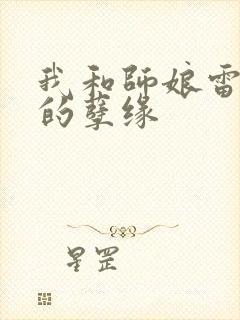 我和師娘雷
的孽缘
星罡